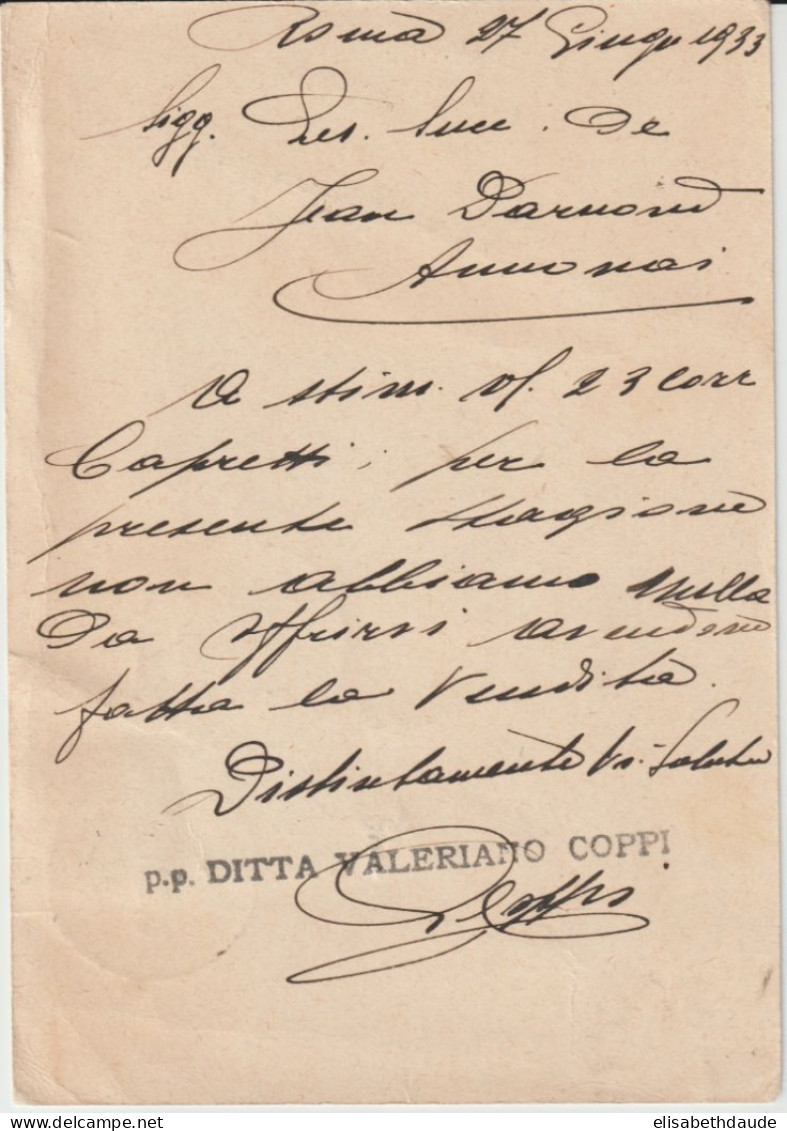 Roma 27 Giugno 1933
Sigg. Les. Succ. De
Jean Darnond
Annonai
A stim. vs. 23 corr
Capretti; per la
presente stagione
non abbiamo nulla
Da offrirvi avendone
fatta la vendita.
Distintamente Vi Saluto
p.p. DITTA VALERIANO COPPI
Coppi
elisabethdaude